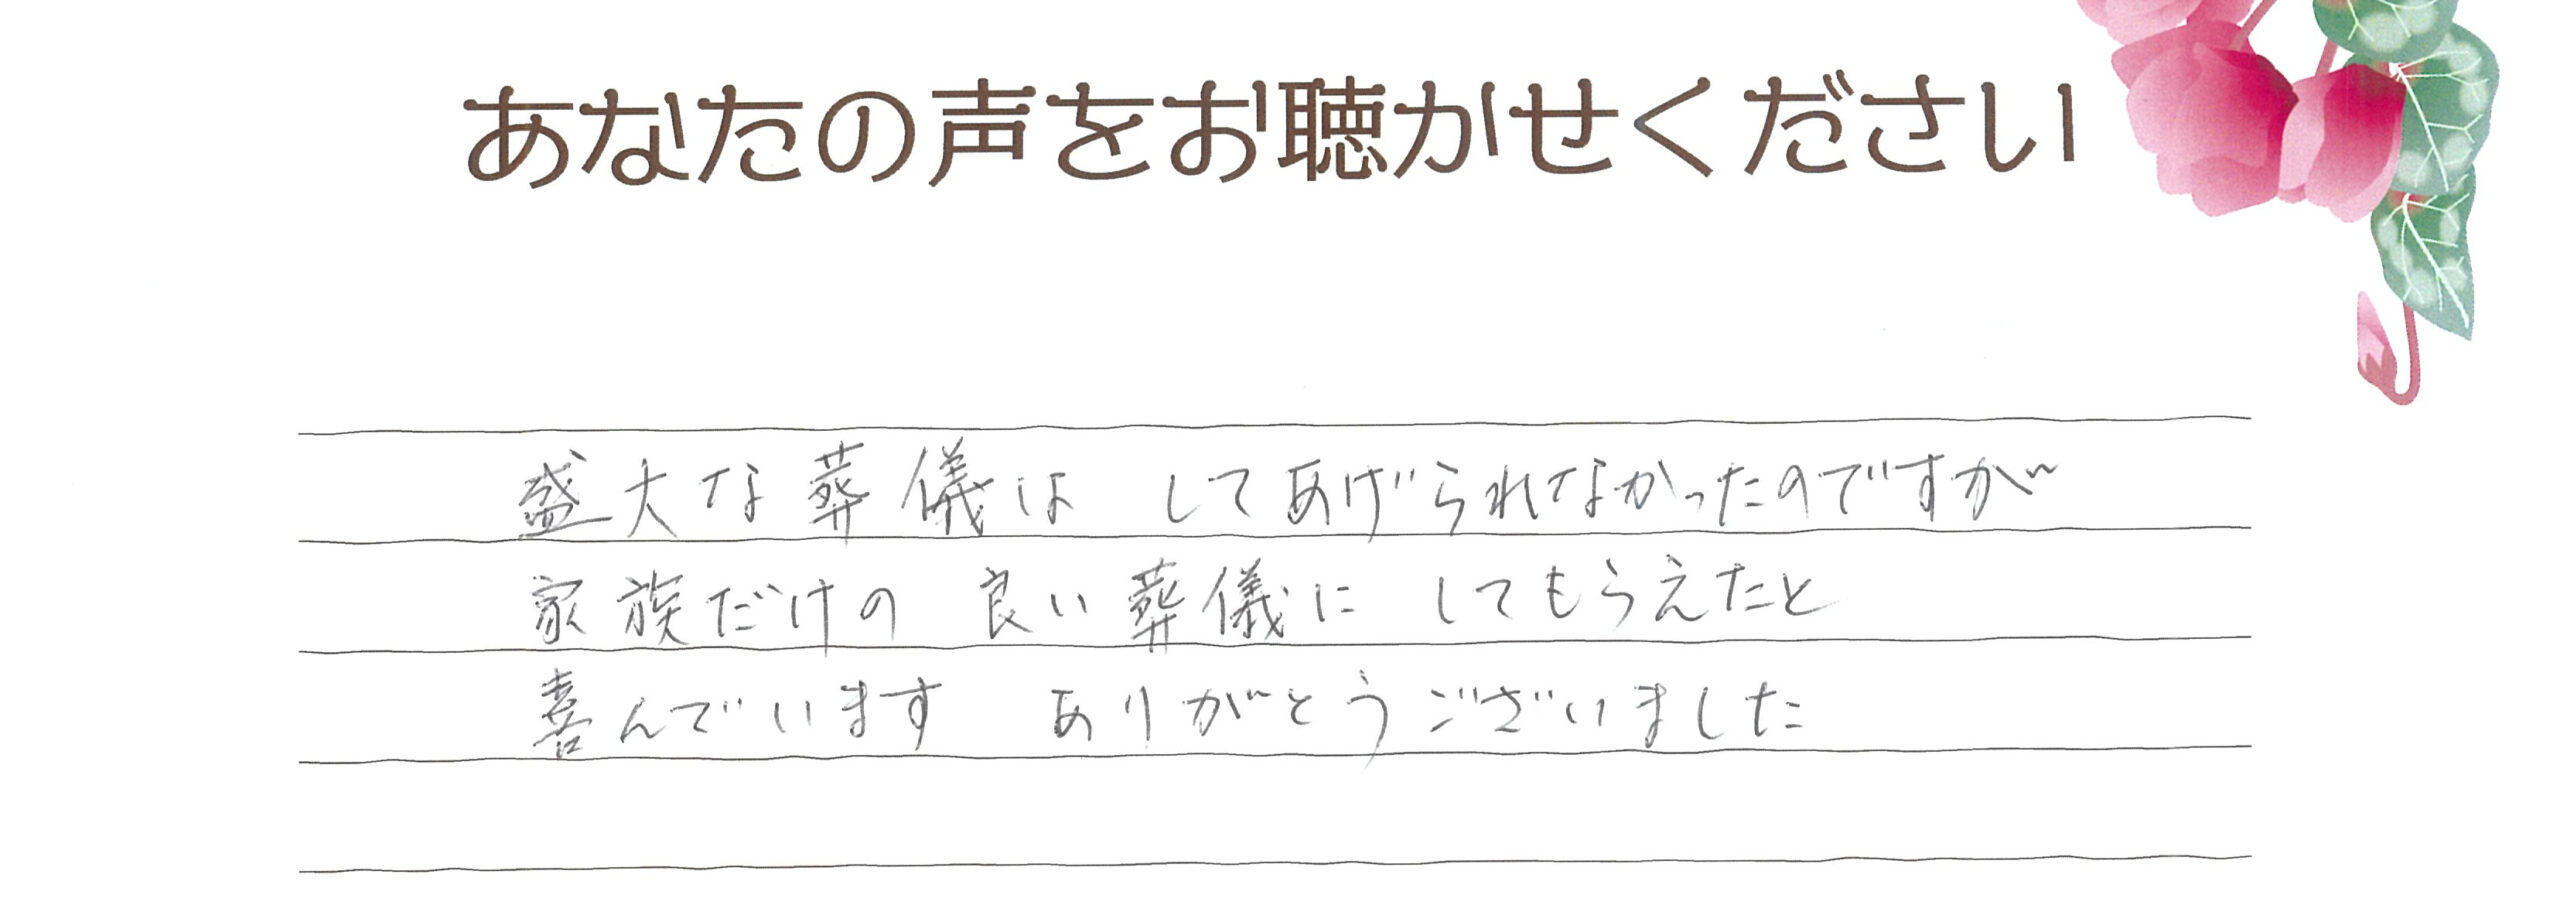 あなたの声をお聴かせください
盛大な葬儀は してあげられなかったのですが
家族だけの 良い葬儀に してもらえたと
喜んでいます ありがとうございました